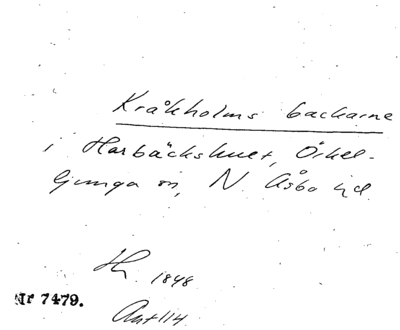 Kråkholms backarne
i Harbäckshult, Örkel-
ljunga sn, N. Åsbo hd.
1848
Nr 7479.